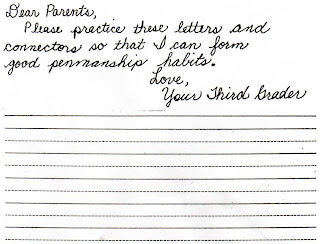 Dear Parents,
Please practice these letters and
connectors so that I can form
good penmanship habits.
Love,
Your Third Grader